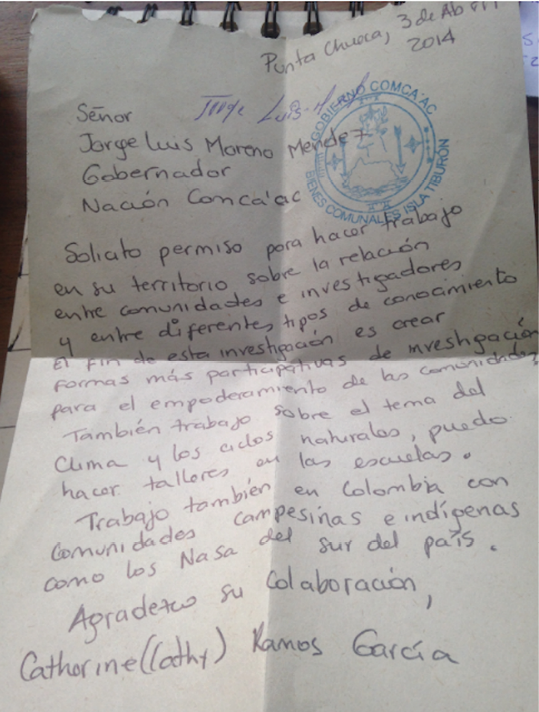 Punta Chueca, 3 de Abril
2014
Jorge Luis
GOBIERNO COMCA'AC
BIENES COMUNALES ISLA TIBURÓN
Señor
Jorge Luis Moreno Mendez
Gobernador
Nación Comca'ac
Solicito permiso para hacer trabajo
en su territorio sobre la relación
entre comunidades e investigadores
y entre diferentes tipos de conocimiento
El fin de esta investigación es crear
formas más participativas de investigación
para el empoderamiento de las comunidades
También trabajo sobre el tema del
Clima y los ciclos naturales, puedo
hacer talleres en las escuelas.
Trabajo también en Colombia con
Comunidades campesiñas e indígenas
como los Nasa del sur del país.
Agradezco su Colaboración,
Catherine (Cathy) Ramos García